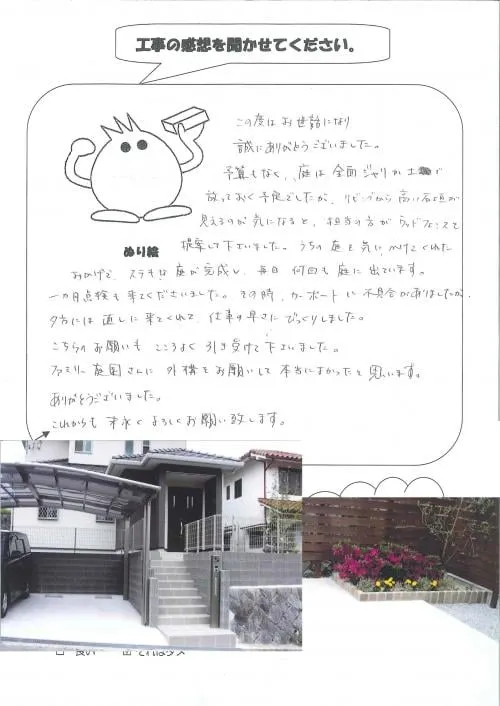 工事の感想を聞かせてください。
この度はお世話になり
誠にありがとうございました。
予算もなく、庭は全面ジャリか土で
放っておく予定でしたが、リビングから高い石垣が
見えるのが気になると、担当の方がウッドフェンスで
提案して下さいました。うちの庭を気にかけてくれた
ぬり絵
おかげで、ステキな庭が完成し、毎日何回も庭に出ています。
一カ月点検も来てくださいました。その時、カーポートに不具合がありましたが、
夕方には直しに来てくれて、仕事の早さにびっくりしました。
こちらのお願いもこころよく引き受けて下さいました。
ファミリー庭園さんに外構をお願いして本当によかったと思います。
ありがとうございました。
これからも末永くよろしくお願い致します。